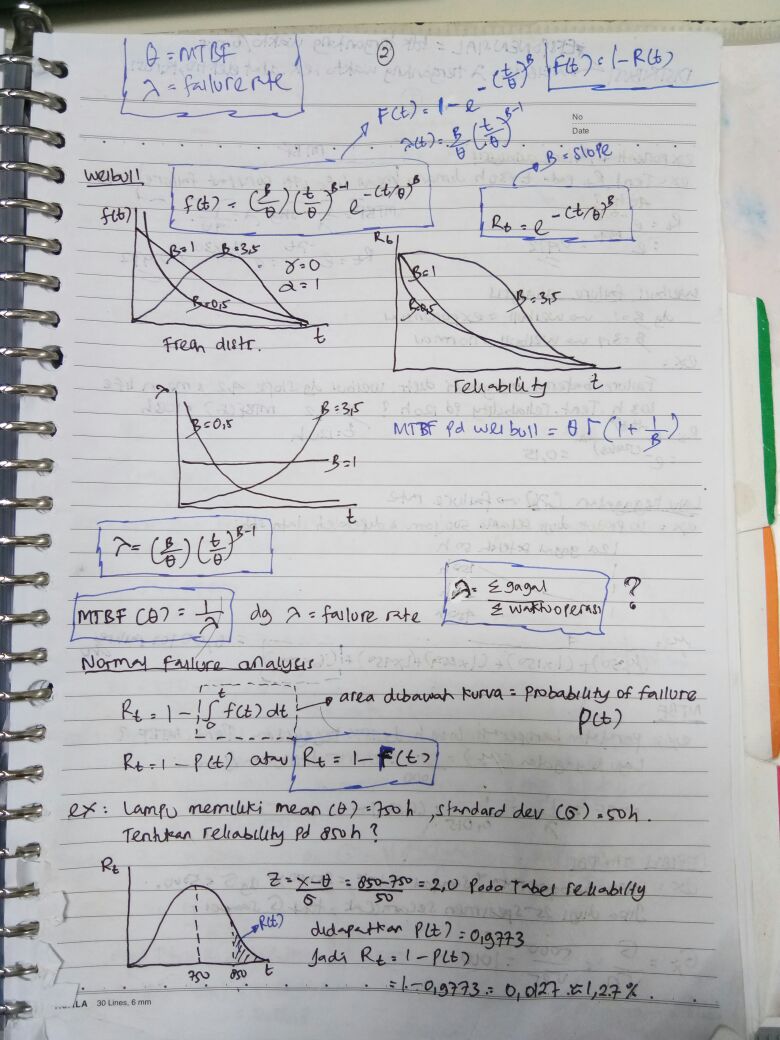 ②
θ = MTBF
λ = failure rate
F(t) = 1 - R(t)
F(t) = 1 - e^-(t/θ)^B
λ(t) = B/θ (t/θ)^B-1
No
Date
B = slope
Weibull
f(t) = (B/θ) (t/θ)^B-1 e^-(t/θ)^B
Rt = e^-(t/θ)^B
f(t)
B=1
B=3,5
B=0,5
γ = 0
α = 1
t
Freq distr.
Rt
B=1
B=0,5
B=3,5
t
reliability
λ
B=0,5
B=3,5
B=1
t
MTBF pd weibull = θ Γ (1 + 1/B)
λ = (B/θ) (t/θ)^B-1
MTBF (θ) = 1/λ dg λ = failure rate
λ = Σ gagal / Σ waktu operasi ?
Normal Failure analysis
Rt = 1 - ∫₀ᵗ f(t) dt → area dibawah kurva = probability of failure
P(t)
Rt = 1 - P(t) atau Rt = 1 - F(t)
ex: Lampu memiliki mean (θ) = 750 h, standard dev (σ) = 50 h.
Tentukan reliability pd 850 h?
Rt
R(t)
750
850
t
Z = x-θ/σ = 850-750/50 = 2,0 Pada Tabel reliability
didapatkan P(t) = 0,9773
Jadi Rt = 1 - P(t)
= 1 - 0,9773 = 0,0127 ≈ 1,27 %.
LA 30 Lines, 6 mm